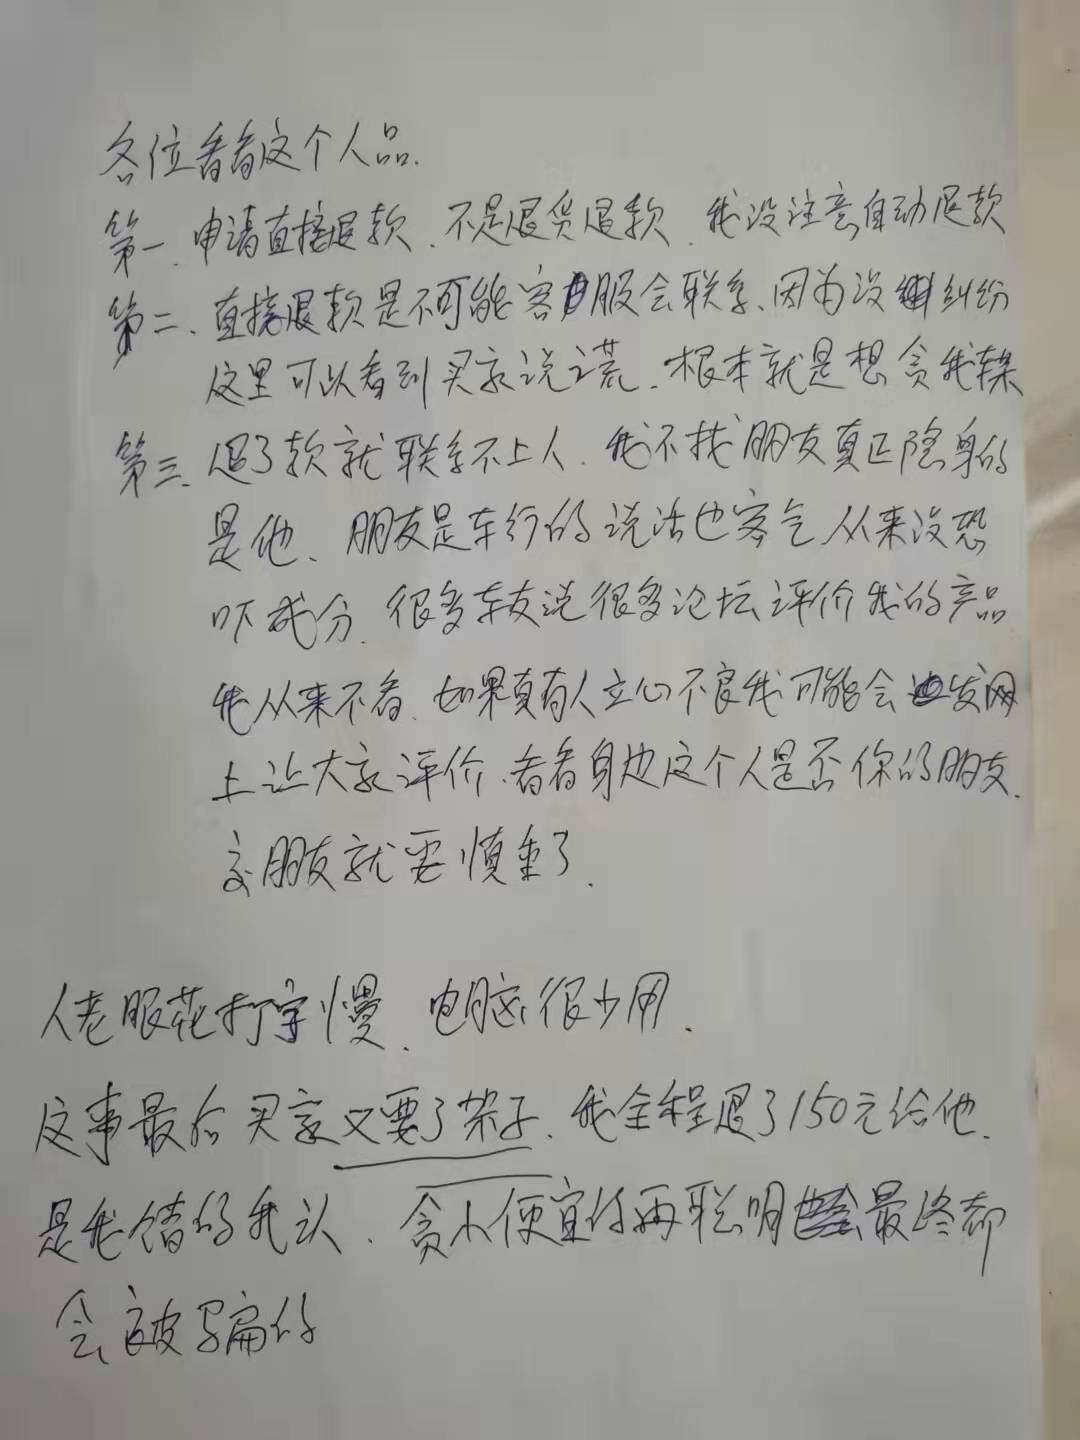 各位看看这个人品.
第一、申请直接退款、不是退货退款、我没注意自动退款
第二、直接退款是不可能客服会联系、因为没纠纷
这里可以看到买家说谎、根本就是想贪我
第三、退了款就联系不上人、我不找朋友真正隐身的
是他、朋友是车行的说话也客气从来没恐
吓成分、很多车友说很多论坛评价我的产品
我从来不看、如果真有人立心不良我可能会发网
上让大家评价、看看身边这个人是否你的朋友.
交朋友就要慎重了.
人老眼花打字慢、电脑很少用.
这事最后买家又要了架子、我全程退了150元给他.
是我错的我认、贪小便宜你再聪明最终都
会被骗你